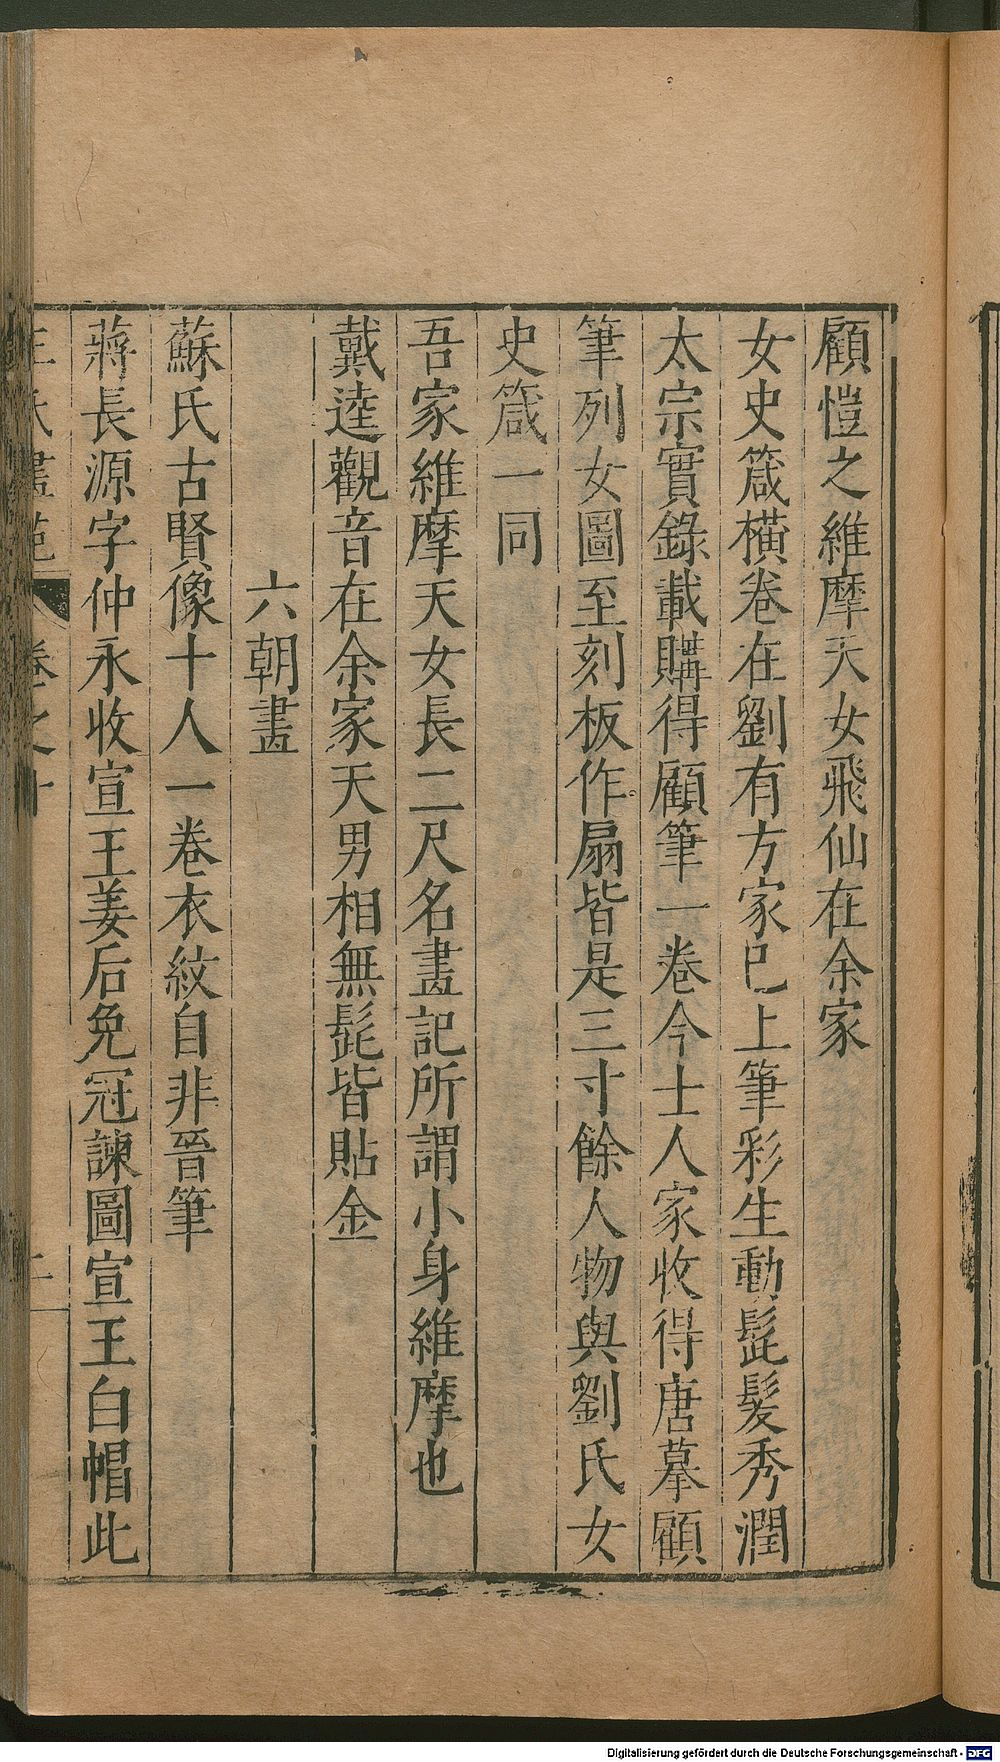 顧愷之維摩天女飛仙在余家
女史箴橫卷在劉有方家已上筆彩生動髭髪秀潤
太宗實錄載購得顧筆一卷今士人家收得唐摹顧
筆列女圖至刻板作扇皆是三寸餘人物與劉氏女
史箴一同
吾家維摩天女長二尺名畫記所謂小身維摩也
戴逵觀音在余家天男相無髭皆貼金
六朝畫
蘇氏古賢像十人一卷衣紋自非晉筆
蔣長源字仲永收宣王姜后免冠諫圖宣王白帽此
王氏畫苑 卷之十 二
Digitalisierung gefördert durch die Deutsche Forschungsgemeinschaft - DFG